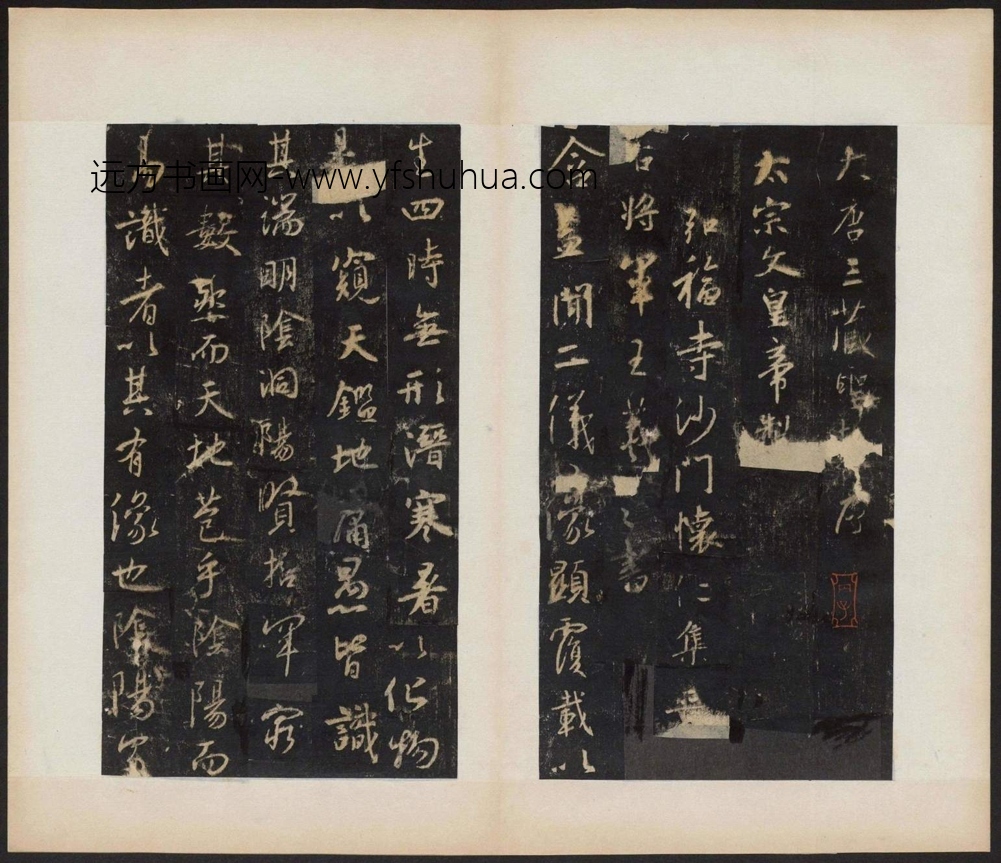 大唐三藏聖教序
太宗文皇帝製
弘福寺沙門懷仁集晉
右將軍王羲之書
盖聞二儀有像顯覆載以
含
生四時無形潛寒暑以化物
是以窺天鑑地庸愚皆識
其端明陰洞陽賢哲罕窮
其數然而天地苞乎陰陽而
易識者以其有像也陰陽處
远方书画网-www.yfshuhua.com